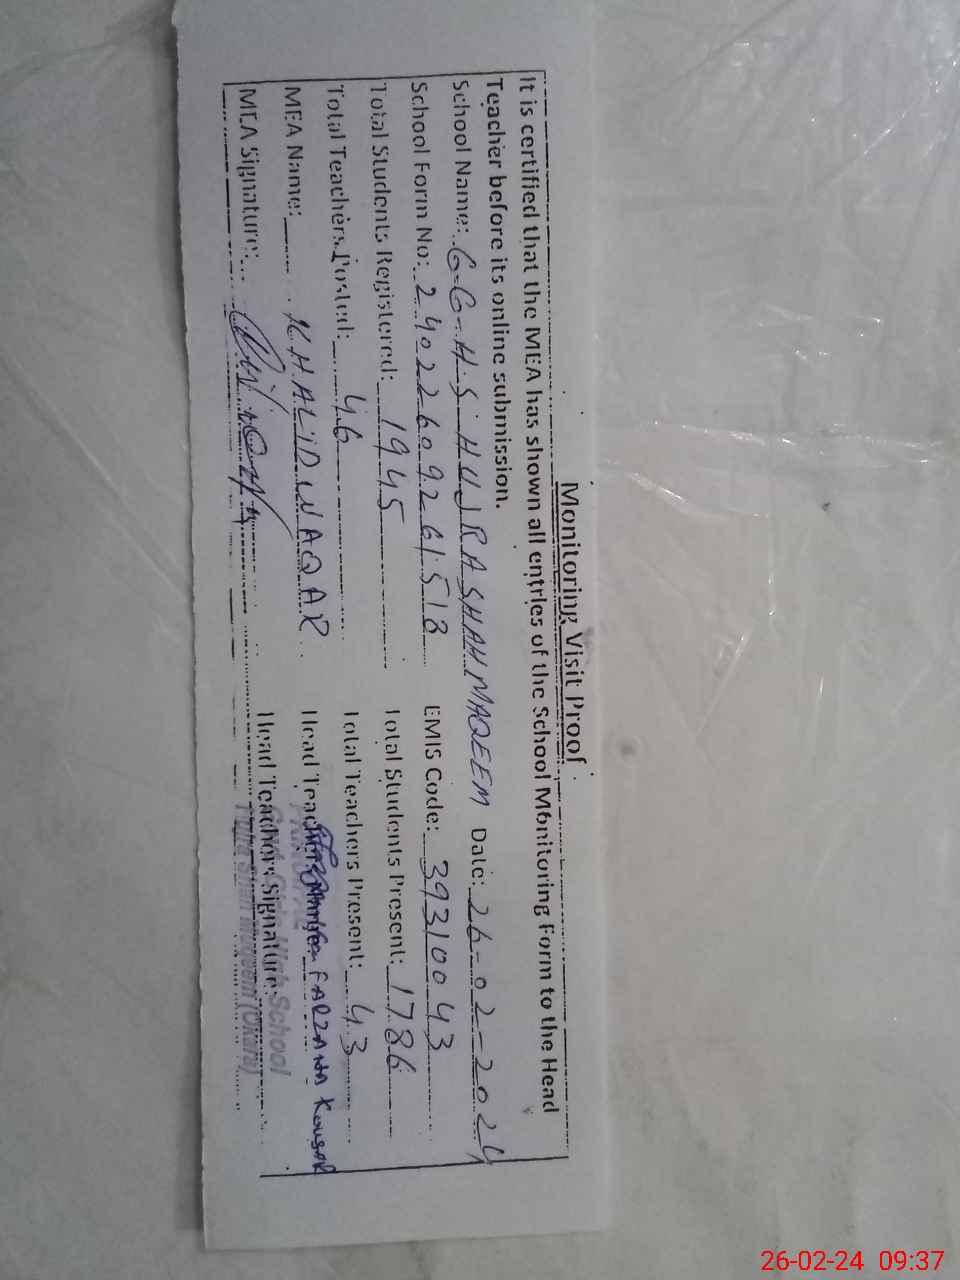 Monitoring Visit Proof
It is certified that the MEA has shown all entries of the School Monitoring Form to the Head
Teacher before its online submission.
School Name: G-G-H-S HUJRA SHAH MAQEEM Date: 26-02-2024
School Form No: 24022609261518 EMIS Code: 39310043
Total Students Registered: 1945 Total Students Present: 1786
Total Teachers Posted: 46 Total Teachers Present: 43
MEA Name: KHALID WAQAR Head Teacher Name: FARZANA KOUSAR
MEA Signature: Head Teachers Signature:
PRINCIPAL
Govt. Girls High School
Hujra Shah Muqeem (Okara)
26-02-24 09:37